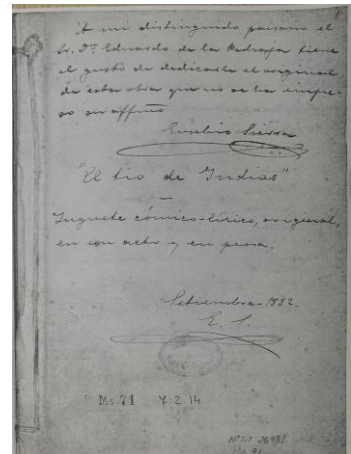 A mi distinguido paisano el
Sr. Dn. Eduardo de la Pedraja tiene
el gusto de dedicarle el original
de esta obra que no se ha impre-
so su affmo
Eusebio Sierra
"El tio de Indias"
Juguete cómico-lírico, original,
en un acto y en prosa.
Setiembre-1882.
E. S.
Ms. 71 7. 2. 14